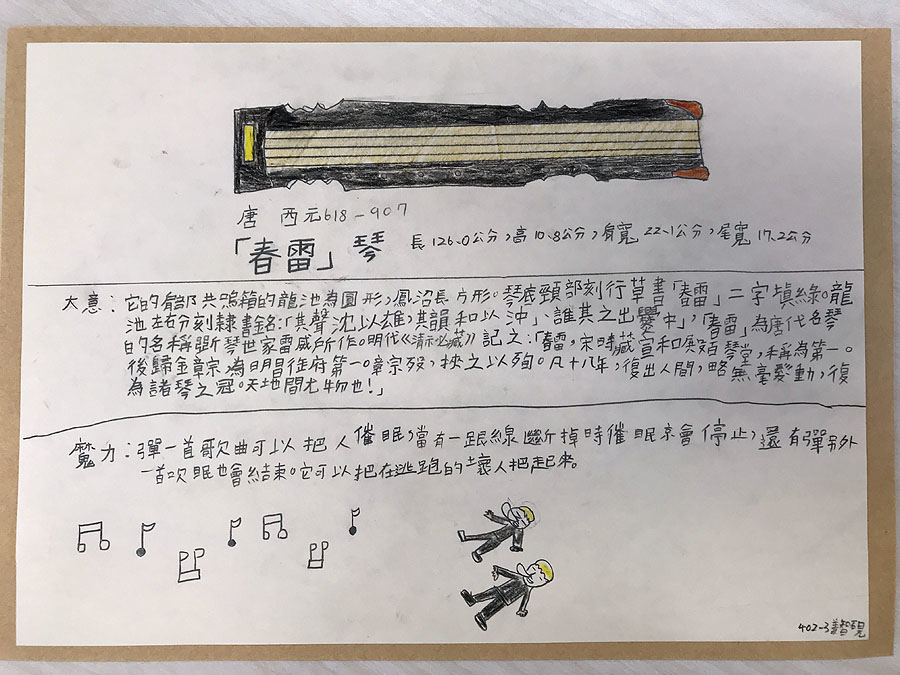 唐 西元618-907
「春雷」琴 長126.0公分,高10.8公分,肩寬22.1公分,尾寬17.2公分
大意:它的頸部共鳴箱的龍池為圓形,鳳沼長方形。琴底頸部刻行草書「春雷」二字填綠。龍
池左右分刻隸書銘:「其聲沈以雄,其韻和以沖」、誰其之出爨中」,「春雷」為唐代名琴
的名稱斲琴世家雷威所作。明代《清祕藏》記之:「春雷,宋時藏宣和殿百琴堂,稱為第一。
後歸金章宗,為明昌御府第一。章宗歿,挾之以殉。凡十八年,復出人間,略無毫髮動,復
為諸琴之冠。天地間尤物也!」
魔力:彈一首歌曲可以把人催眠,當有一跟線斷掉時催眠會停止,還有彈另外
一首吹眠也會結束。它可以把在逃跑的壞人把起來。
402-3